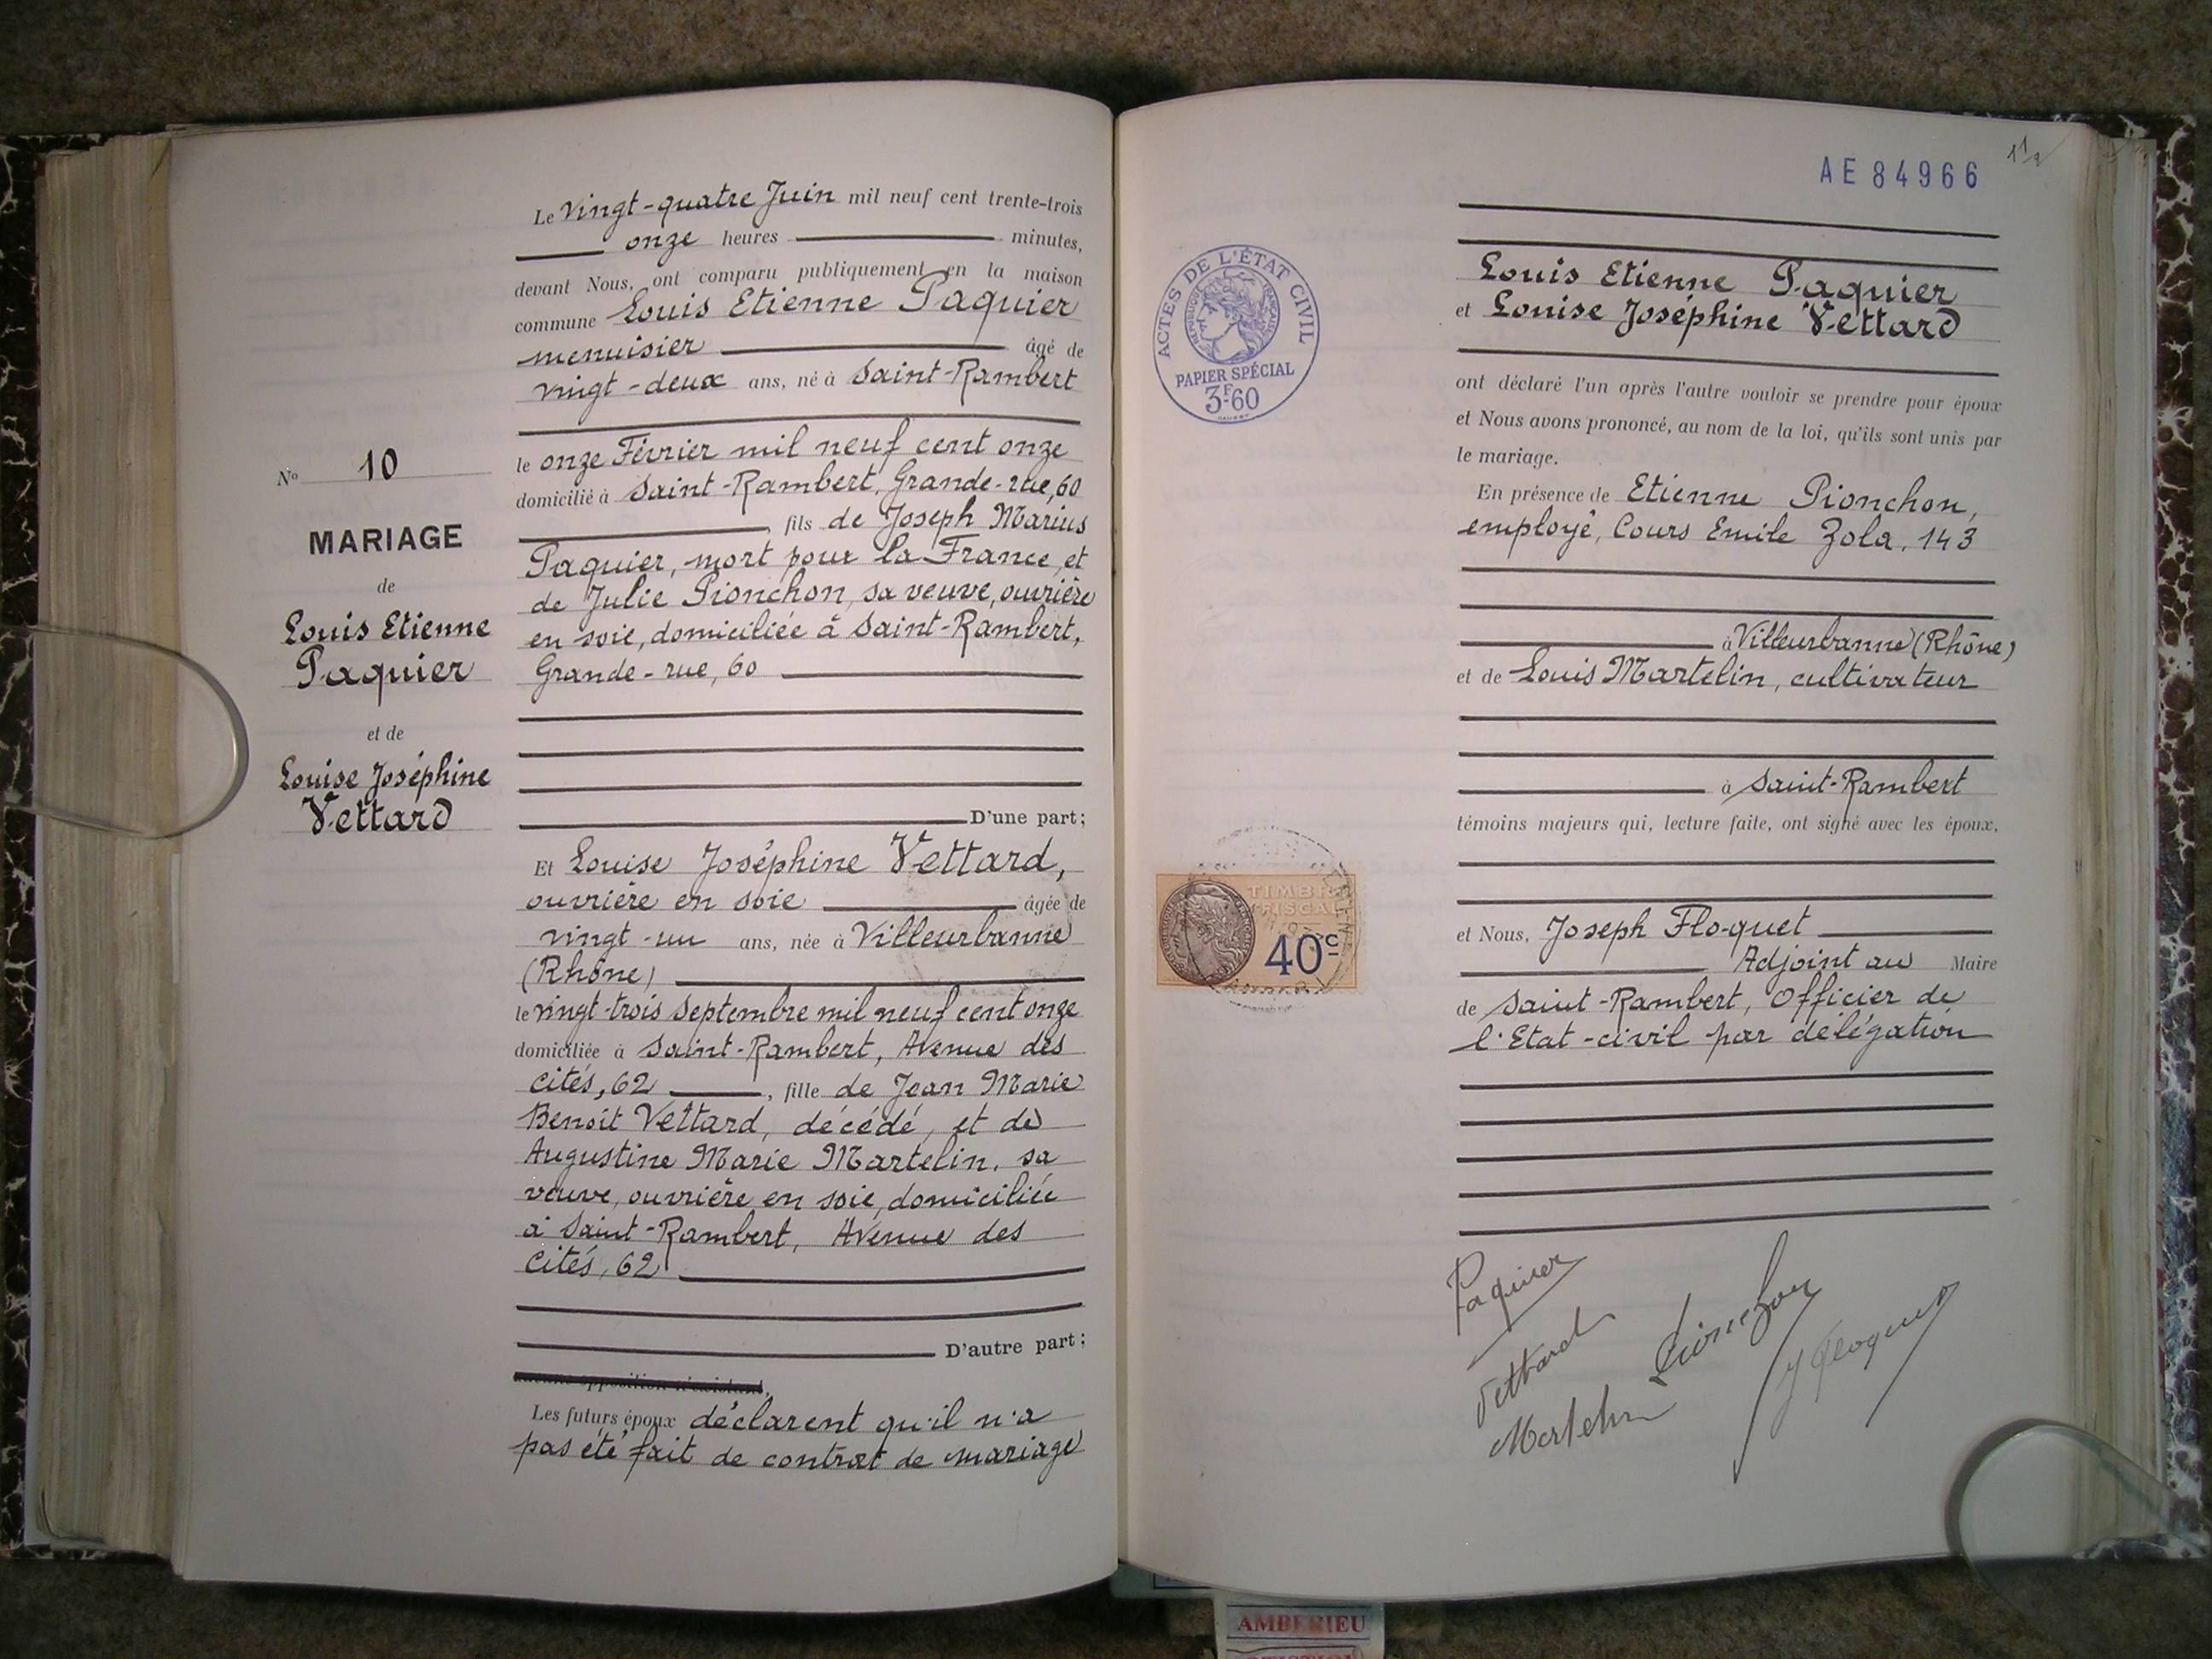 Le Vingt-quatre Juin mil neuf cent trente-trois
onze heures minutes,
devant Nous, ont comparu publiquement en la maison
commune Louis Etienne Paquier
menuisier âgé de
vingt-deux ans, né à Saint-Rambert
le onze Février mil neuf cent onze
domicilié à Saint-Rambert, Grande-rue, 60
, fils de Joseph Marius
Paquier, mort pour la France, et
de Julie Pionchon, sa veuve, ouvrière
en soie, domiciliée à Saint-Rambert,
Grande-rue, 60
D'une part;
No 10
MARIAGE
de
Louis Etienne
Paquier
et de
Louise Joséphine
Vettard
Et Louise Joséphine Vettard,
ouvrière en soie âgée de
vingt-un ans, née à Villeurbanne
(Rhône)
le vingt-trois Septembre mil neuf cent onze
domiciliée à Saint-Rambert, Avenue des
Cités, 62, fille de Jean Marie
Benoît Vettard, décédé, et de
Augustine Marie Martelin, sa
veuve, ouvrière en soie, domiciliée
à Saint-Rambert, Avenue des
Cités, 62
D'autre part;
Les futurs époux déclarent qu'il n'a
pas été fait de contrat de mariage
AE 84966
ACTES DE L'ÉTAT CIVIL
RÉPUBLIQUE FRANÇAISE
PAPIER SPÉCIAL
3F-60
Louis Etienne Paquier
et Louise Joséphine Vettard
ont déclaré l'un après l'autre vouloir se prendre pour époux
et Nous avons prononcé, au nom de la loi, qu'ils sont unis par
le mariage.
En présence de Etienne Pionchon,
employé, Cours Emile Zola, 143
à Villeurbanne (Rhône)
et de Louis Martelin, cultivateur
à Saint-Rambert
témoins majeurs qui, lecture faite, ont signé avec les époux,
TIMBRE
FISCAL
40c
et Nous, Joseph Floquet
Adjoint au Maire
de Saint-Rambert, Officier de
l'Etat-civil par délégation
Paquier
Vettard
Pionchon
Martelin
J Floquet
AMBERIEU